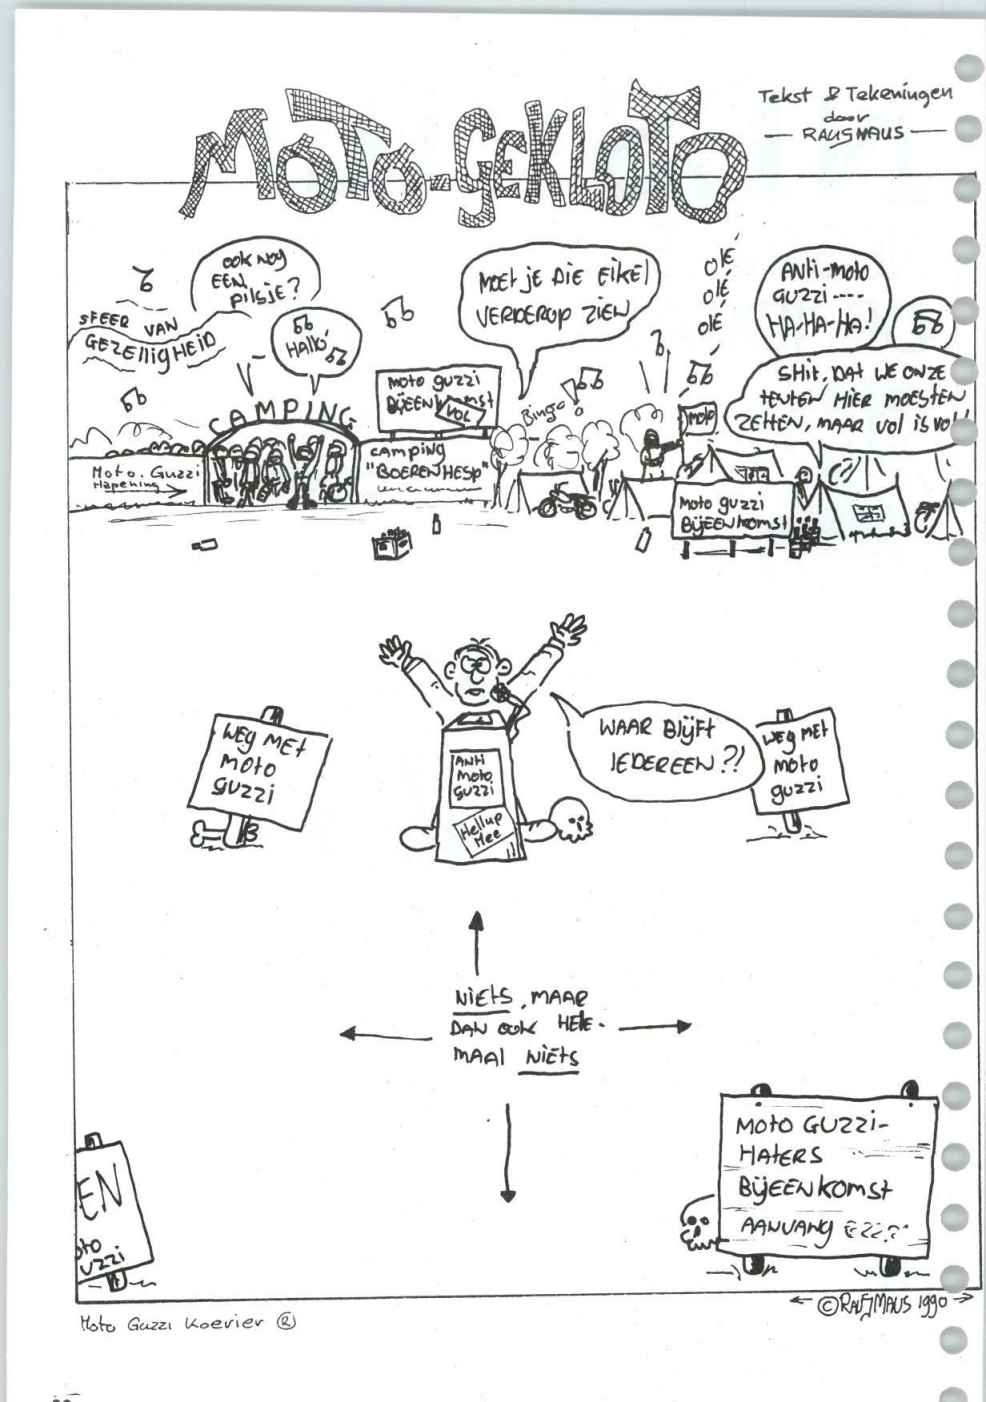 MOTO-GEKLOTO
Tekst & Tekeningen
door
— RALFJ MAUS —
SFEER VAN
GEZELLIGHEID
OOK NOG
EEN
PILSJE?
HALLO
MOET JE DIE EIKEL
VERDEROP ZIEN
OLÉ
OLÉ
OLÉ
ANTI-MOTO
GUZZI ----
HA-HA-HA!
SHIT, DAT WE ONZE
TENTEN HIER MOESTEN
ZETTEN, MAAR VOL IS VOL!
CAMPING
MOTO GUZZI
BIJEENKOMST
VOL
Bingo!
MOTO
Moto. Guzzi
Hapening
CAMPING
"BOERENHESP"
MOTO GUZZI
BIJEENKOMST
WEG MET
MOTO
GUZZI
ANTI
MOTO
GUZZI
Hellup
Mee
WAAR BLIJFT
IEDEREEN ?!
WEG MET
MOTO
GUZZI
NIETS, MAAR
DAN OOK HELE-
MAAL NIETS
EN
OTO
UZZI
MOTO GUZZI-
HATERS
BIJEENKOMST
AANVANG
Moto Guzzi Koerier ®
© RALFJ MAUS 1990